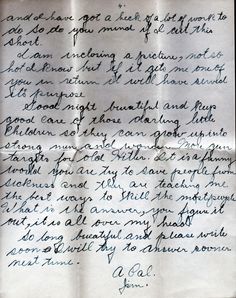 and I have got a heck of a lot of work to
do so do you mind if I cut this
short.
I am inclosing a picture, not so
hot I know but if it gets me one of
you in return it will have served
it's purpose
Good night beautiful and keep
good care of those darling little
Children so they can grow up into
strong men and women. More gun
targets for old Hitler. It is a funny
world you are try to save people from
sickness and they are teaching me
the best ways to kill the most people
What is the answer, you figure it
out, it is all over my head
So long beautiful and please write
soon & I will try to answer sooner
next time.
A Pal.
Jim.